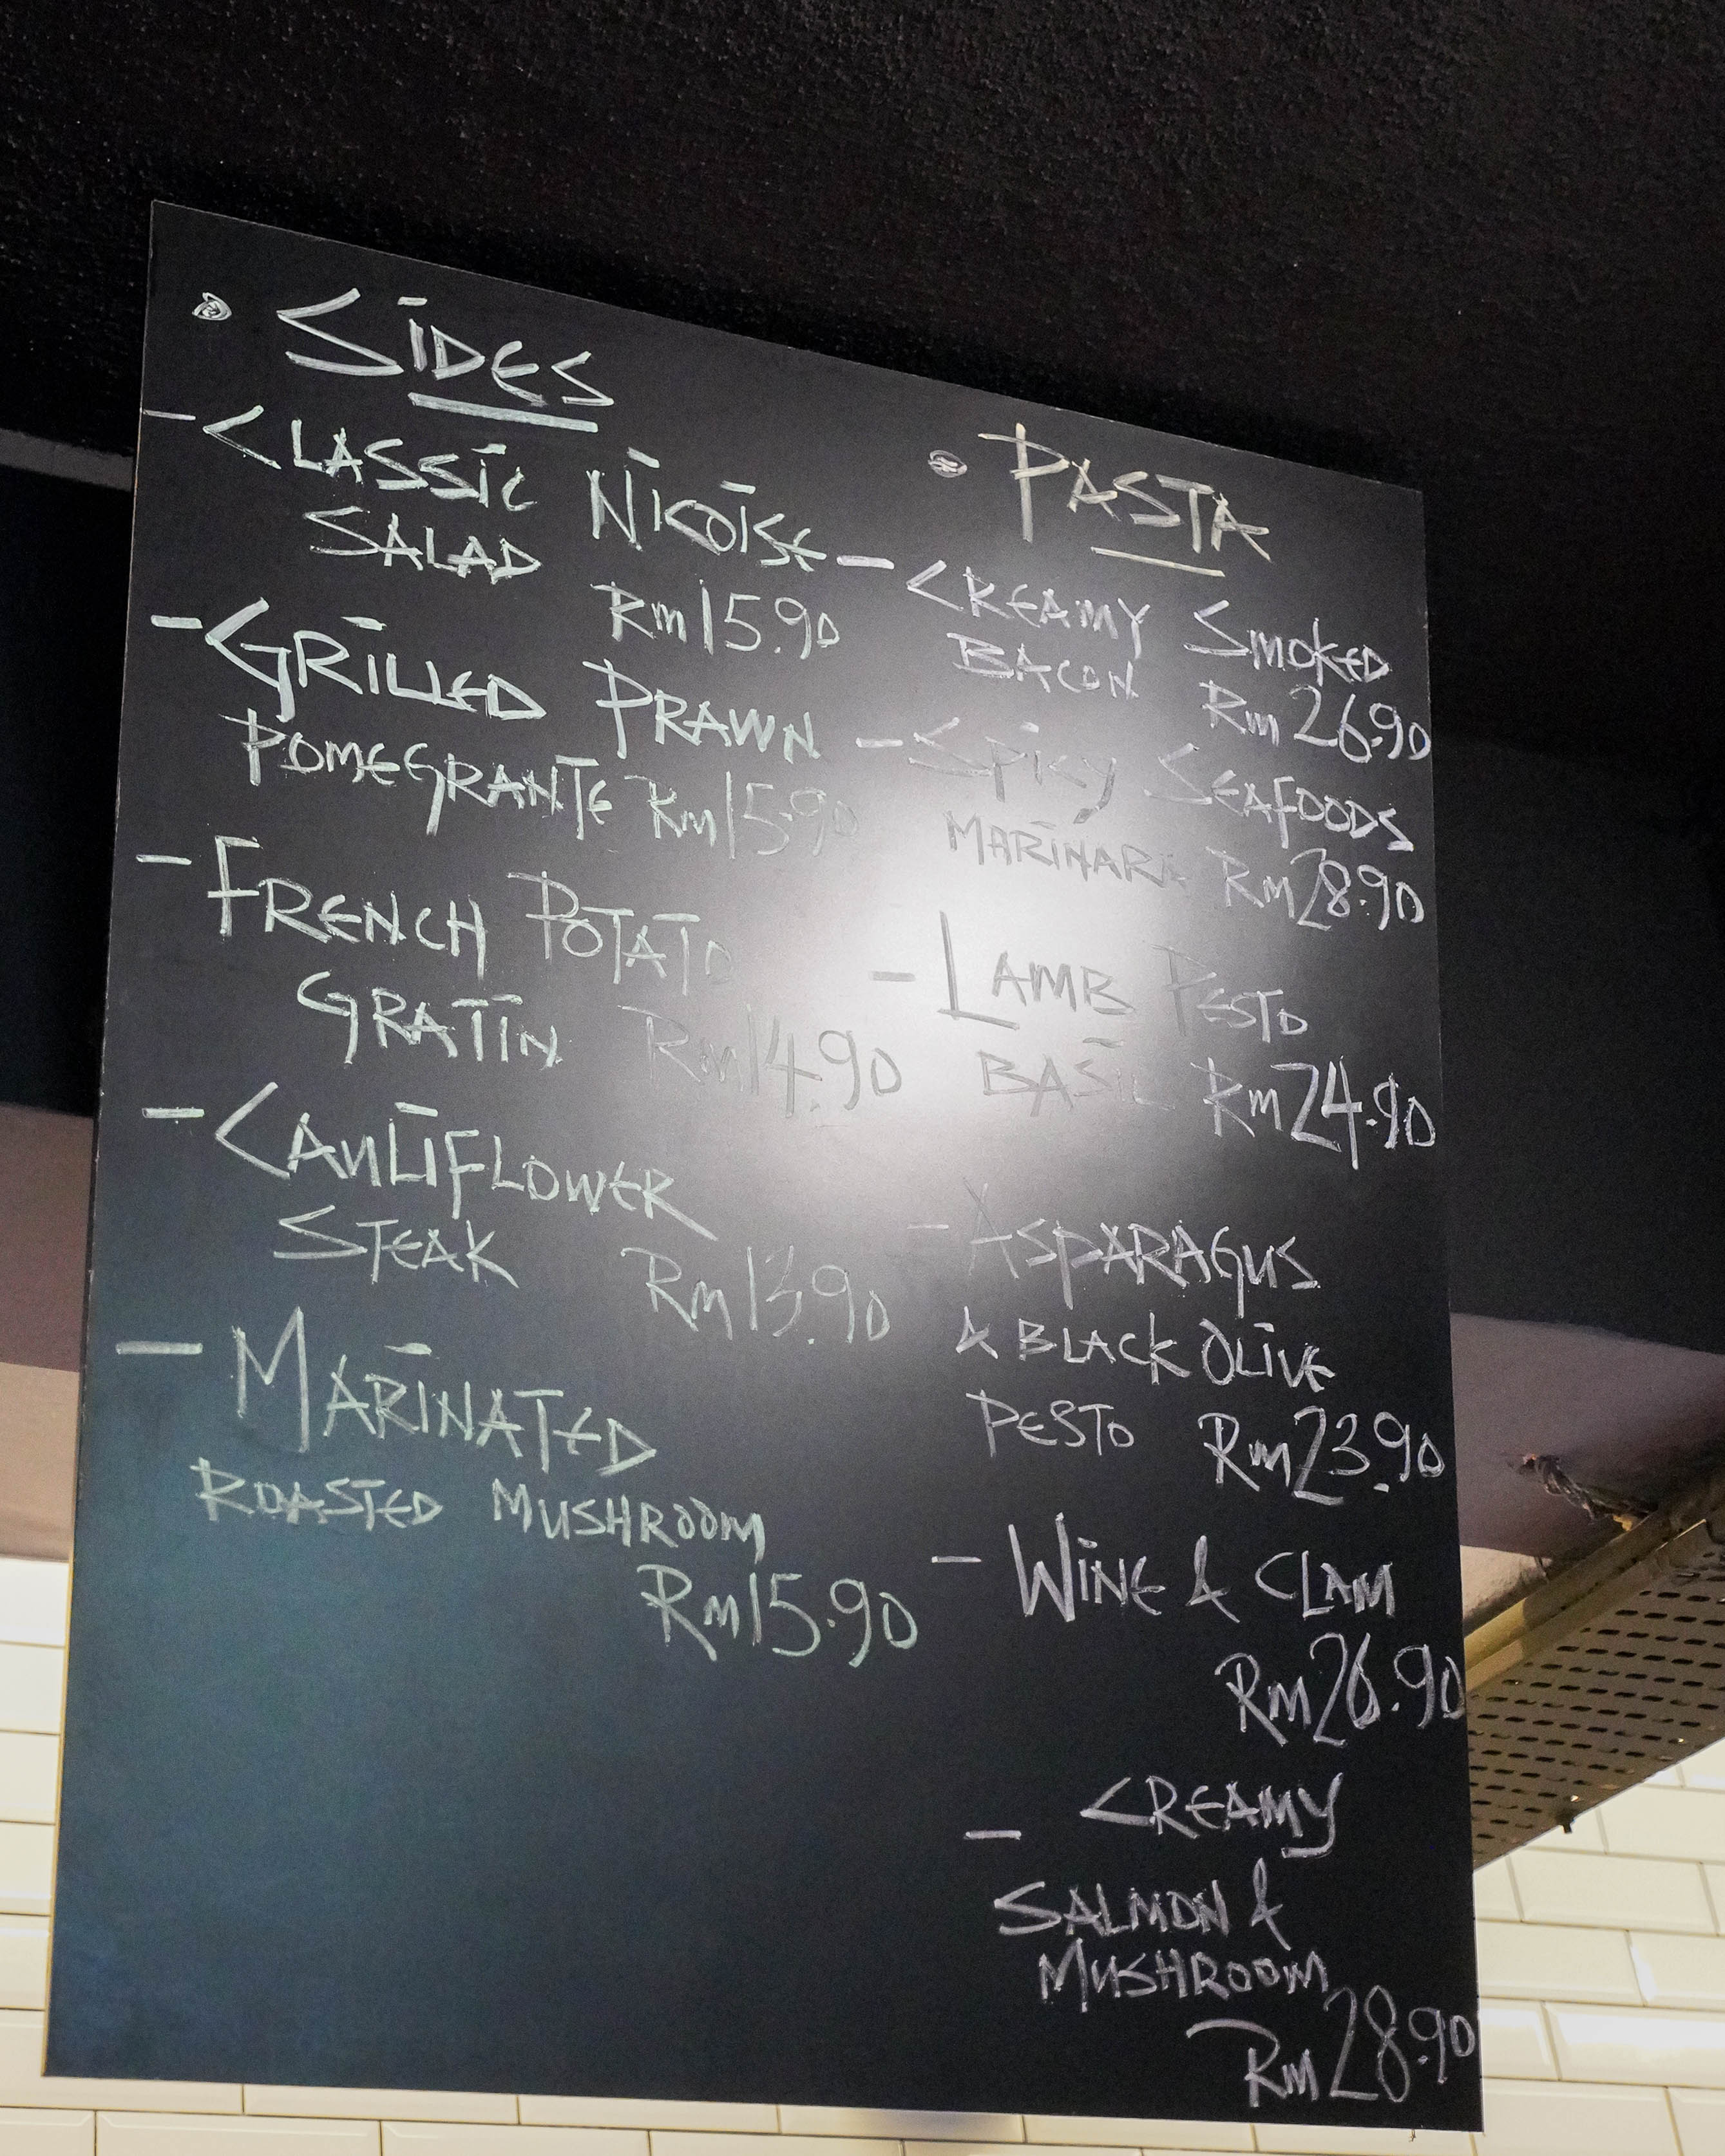 SIDES
- CLASSIC NICOISE
SALAD
Rm15.90
- GRILLED PRAWN
POMEGRANTE Rm15.90
- FRENCH POTATO
GRATIN Rm14.90
- CAULIFLOWER
STEAK Rm13.90
- MARINATED
ROASTED MUSHROOM
Rm15.90
PASTA
- CREAMY SMOKED
BACON Rm26.90
- Spicy SEAFOODS
MARINARA Rm28.90
- LAMB PESTO
BASIL Rm24.90
- ASPARAGUS
& BLACK OLIVE
PESTO Rm23.90
- WINE & CLAM
Rm26.90
- CREAMY
SALMON &
MUSHROOM
Rm28.90